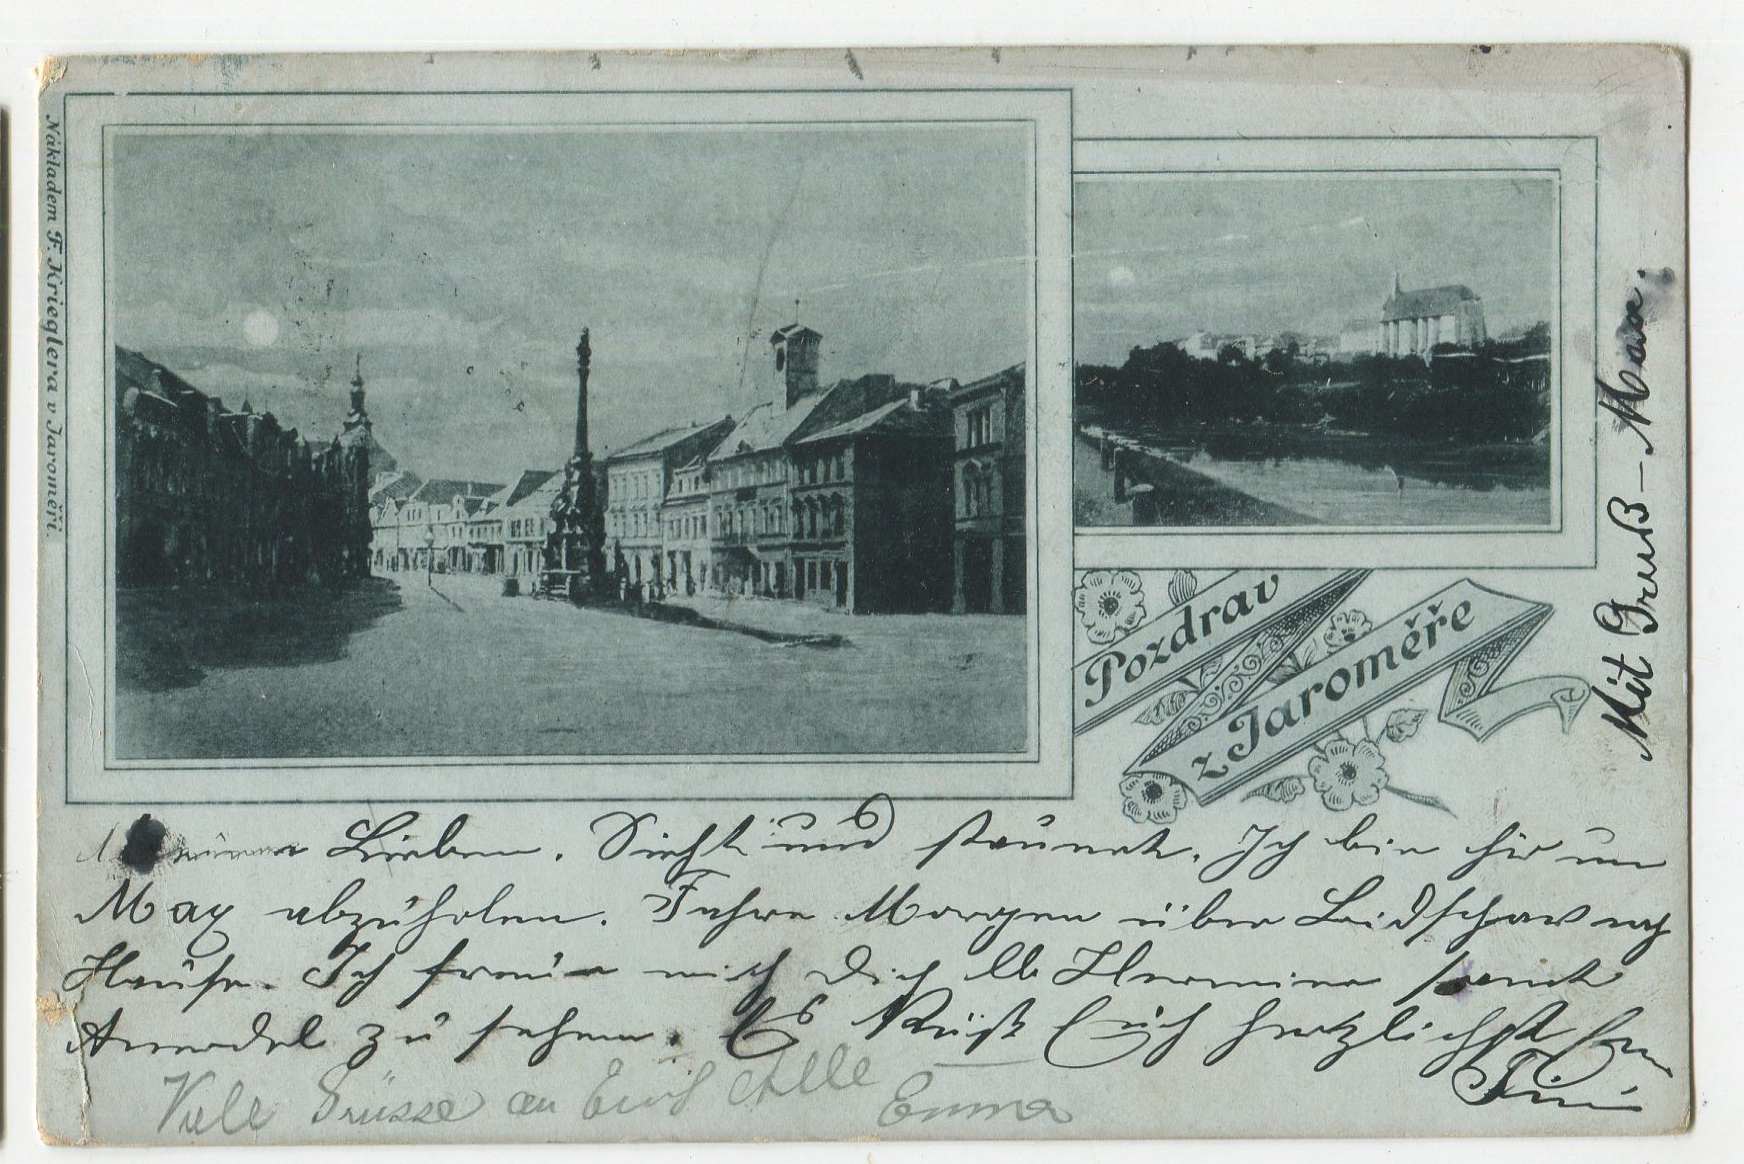 Nákladem F. Krieglera v Jaroměři.
Pozdrav
z Jaroměře
Mit Gruß – Max.
Lieben. Sieht und staunet. Ich bin hir um
Max abzuholen. Fahre Morgen über nach
Hause. Ich freue mich Dich lb Hermine samt
zu sehen. Es Küßt Euch herzlichst
Viele Grüsse an Euch Alle
Emma